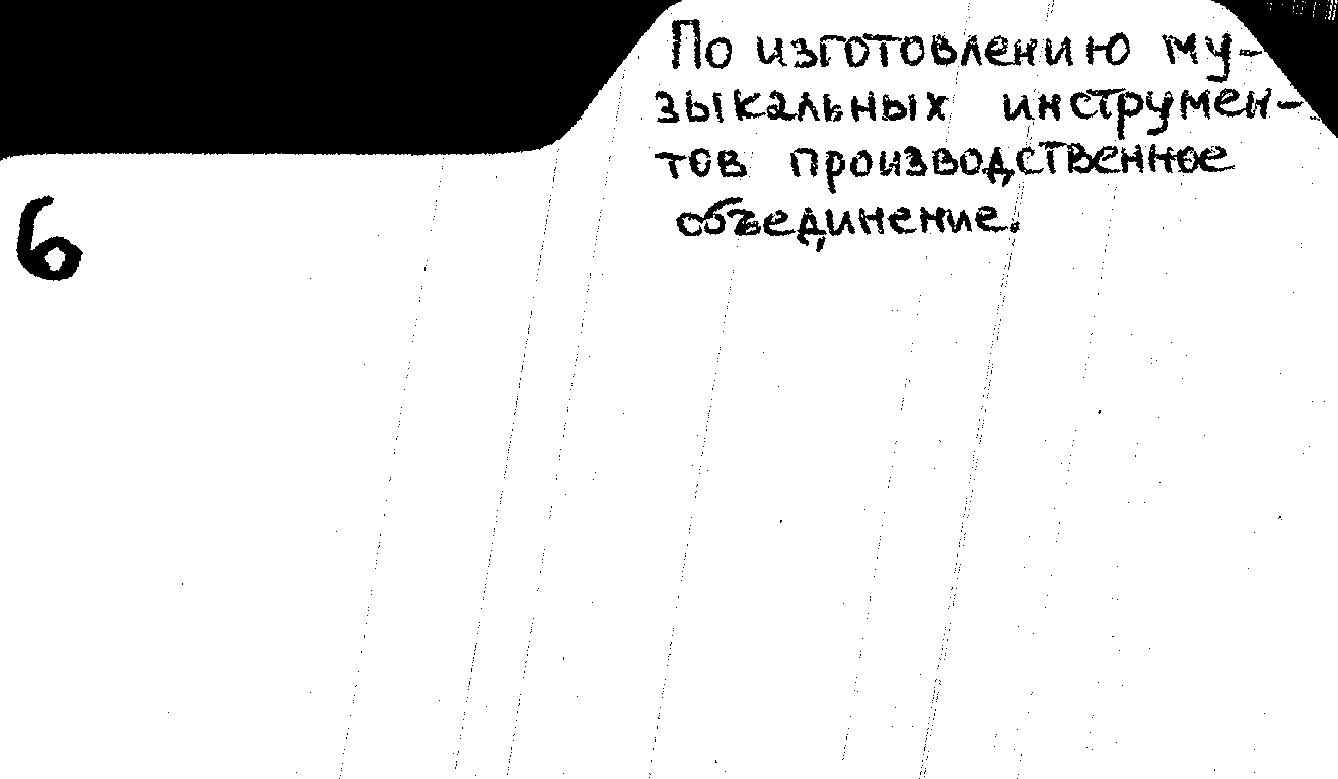 По изготовлению му-
зыкальных инструмен-
тов производственное
объединение.
6